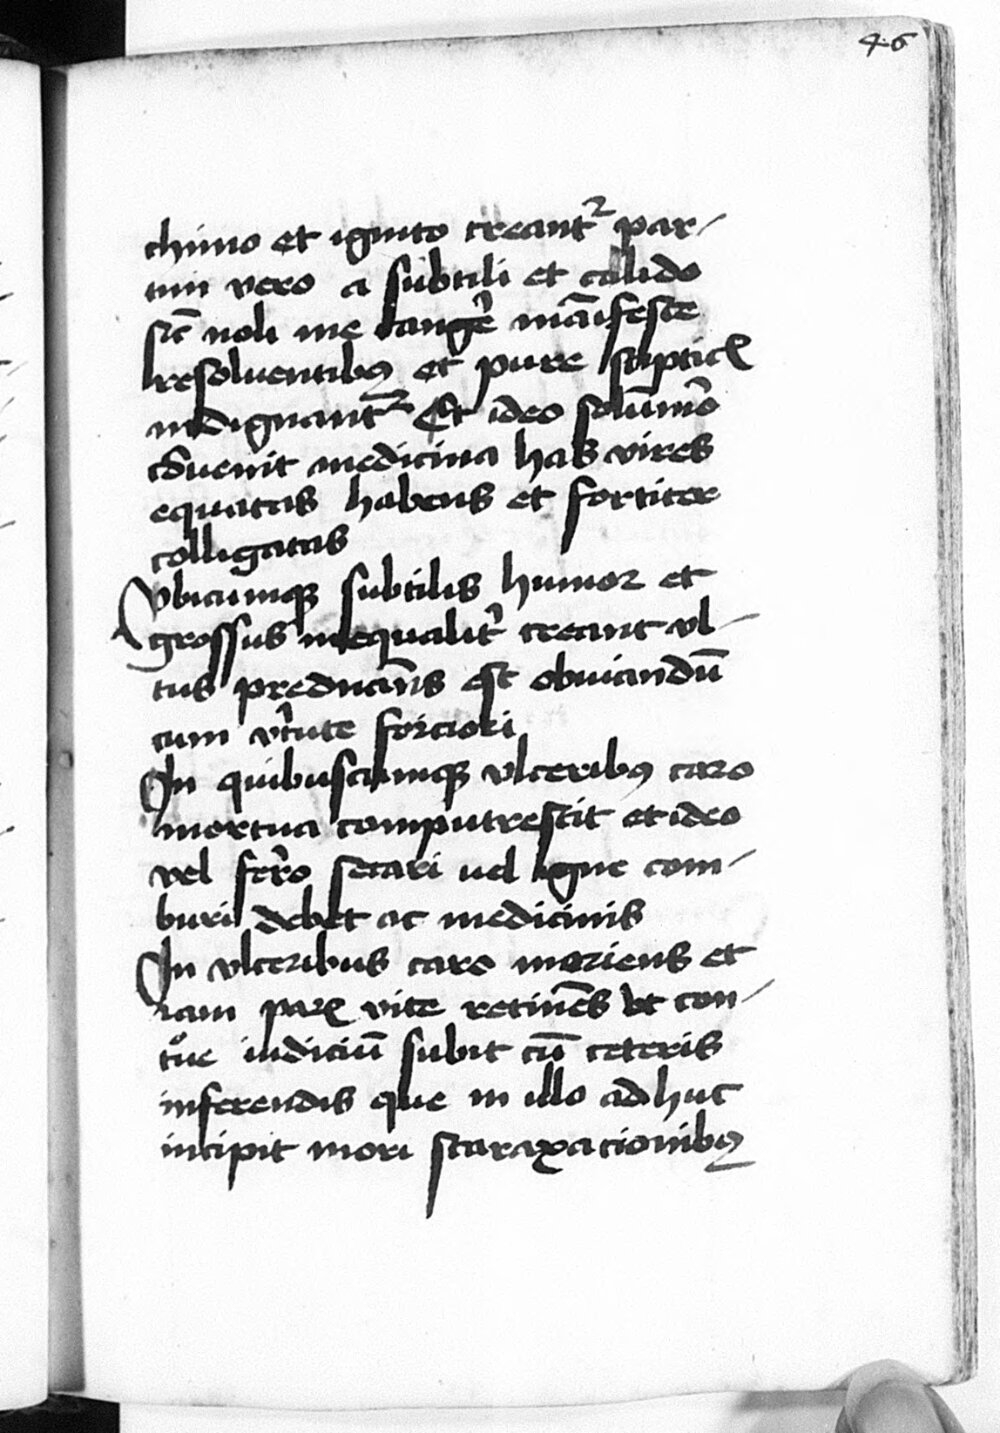 46
chimo et ignito creant᷑ par-
tim vero a subtili et calido
sic̄ noli me tanger̉ māifeste
resoluentibꝰ et pure stipticꝭ
indignant᷑ Et ideo solūmō
cōuenit medicina has vires
equatas habens et fortiter
colligatas
Vbicumqꝫ subtilis humor et
grossus inequalit̉ creant vl-
cus preduc̄ans est obuiandū
cum v̉tute forciori
In quibuscumqꝫ vlceribꝰ caro
mortua computrescit et ideo
vel fer̉o secari uel igne com-
buri debet ac medicinis
In vlceribus caro moriens et
iam parꝭ vite retinēs vt con-
iudiciū subit cū ceteris
inferendis que in illo adhuc
incipit mori scaraxacionibꝰ